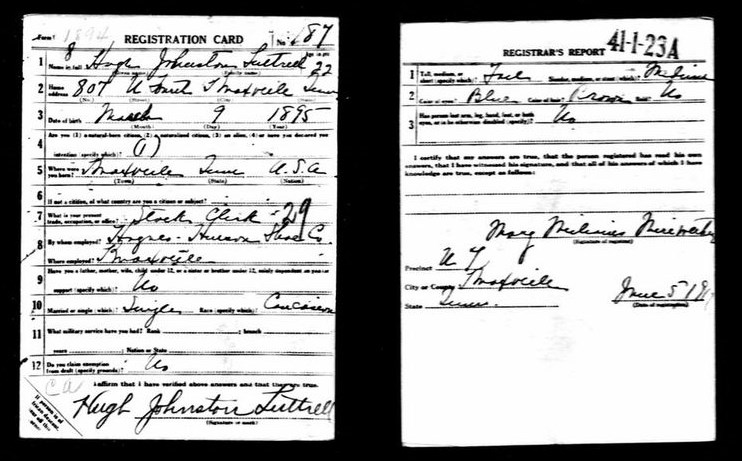 Form 1 1894 REGISTRATION CARD No 187
1 8 Hugh Johnston Luttrell 22
Name in full Age in yrs
(Given name) (Family name)
2 Home address 807 N Knoxville Tenn
(No.) (Street) (City) (State)
3 Date of birth March 9 1895
(Month) (Day) (Year)
4 Are you (1) a natural-born citizen, (2) a naturalized citizen, (3) an alien, (4) or have you declared your
intention (specify which)? (1)
5 Where were you born? Knoxville Tenn U.S.A
(Town) (State) (Nation)
6 If not a citizen, of what country are you a citizen or subject?
7 What is your present trade, occupation, or office? Stock Clerk 29
8 By whom employed? Haynes-Henson Shoe Co.
Where employed? Knoxville
9 Have you a father, mother, wife, child under 12, or a sister or brother under 12, solely dependent on you for
support (specify which)? No
10 Married or single (which)? Single Race (specify which)? Caucasian
11 What military service have you had? Rank ; branch
years ; Nation or State
12 Do you claim exemption from draft (specify grounds)? No
I affirm that I have verified above answers and that they are true.
Hugh Johnston Luttrell
(Signature or mark)
If person is of African descent,
REGISTRAR'S REPORT 41-1-23A
1 Tall, medium, or short (specify which)? Tall Slender, medium, or stout (which)? Medium
2 Color of eyes? Blue Color of hair? Brown Bald? No
3 Has person lost arm, leg, hand, foot, or both eyes, or is he otherwise disabled (specify)? No
I certify that my answers are true, that the person registered has read his own
answers, that I have witnessed his signature, and that all of his answers of which I have
knowledge are true, except as follows:
(Signature of registrar)
Precinct
City or County Knoxville
State Tenn. June 5 191
(Date of registration)